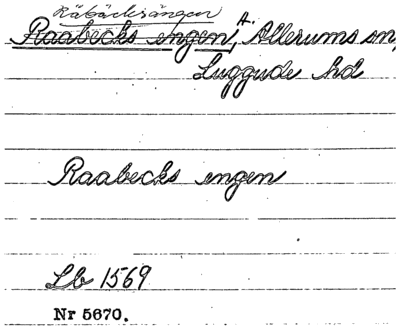 Råbäcksängen
Raabecks engen, A. Allerums sn,
Luggude hd
Raabecks engen
Lb 1569
Nr 5670.